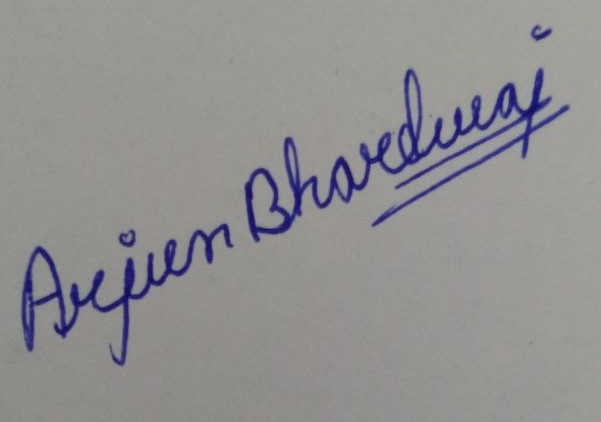 Arjun Bhardwaj